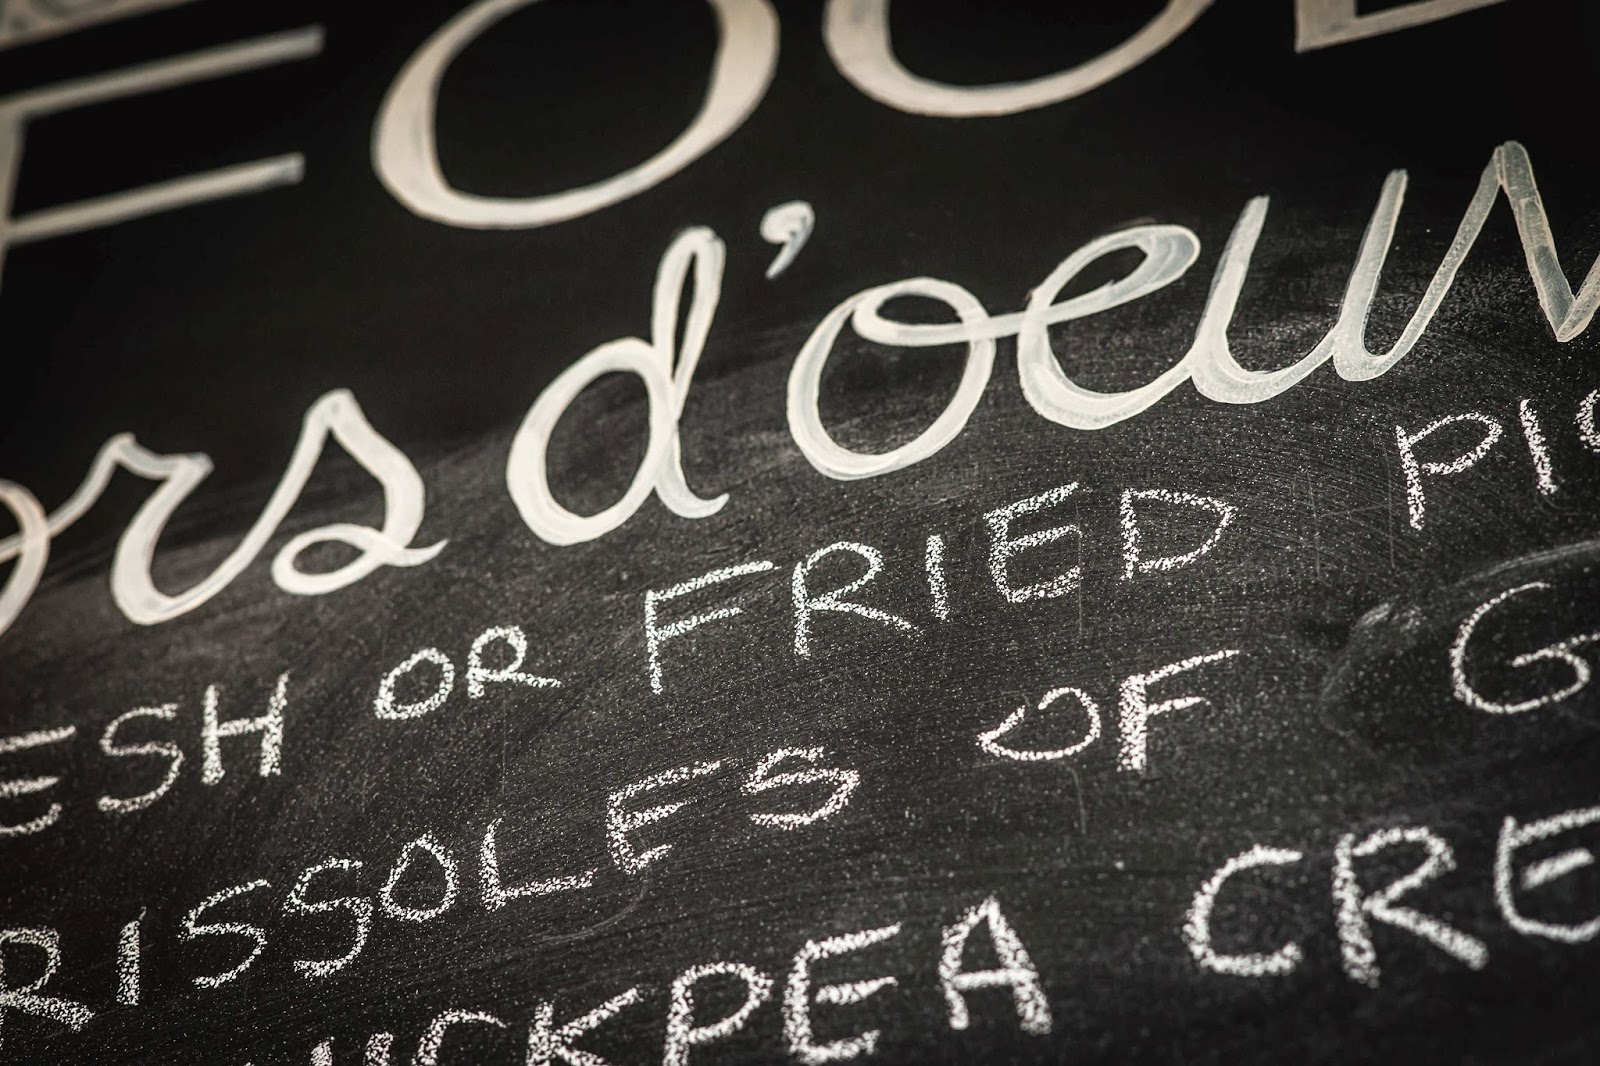 FOO
ors d'oeuv
ESH OR FRIED PI
RISSOLES OF G
CKPEA CRE